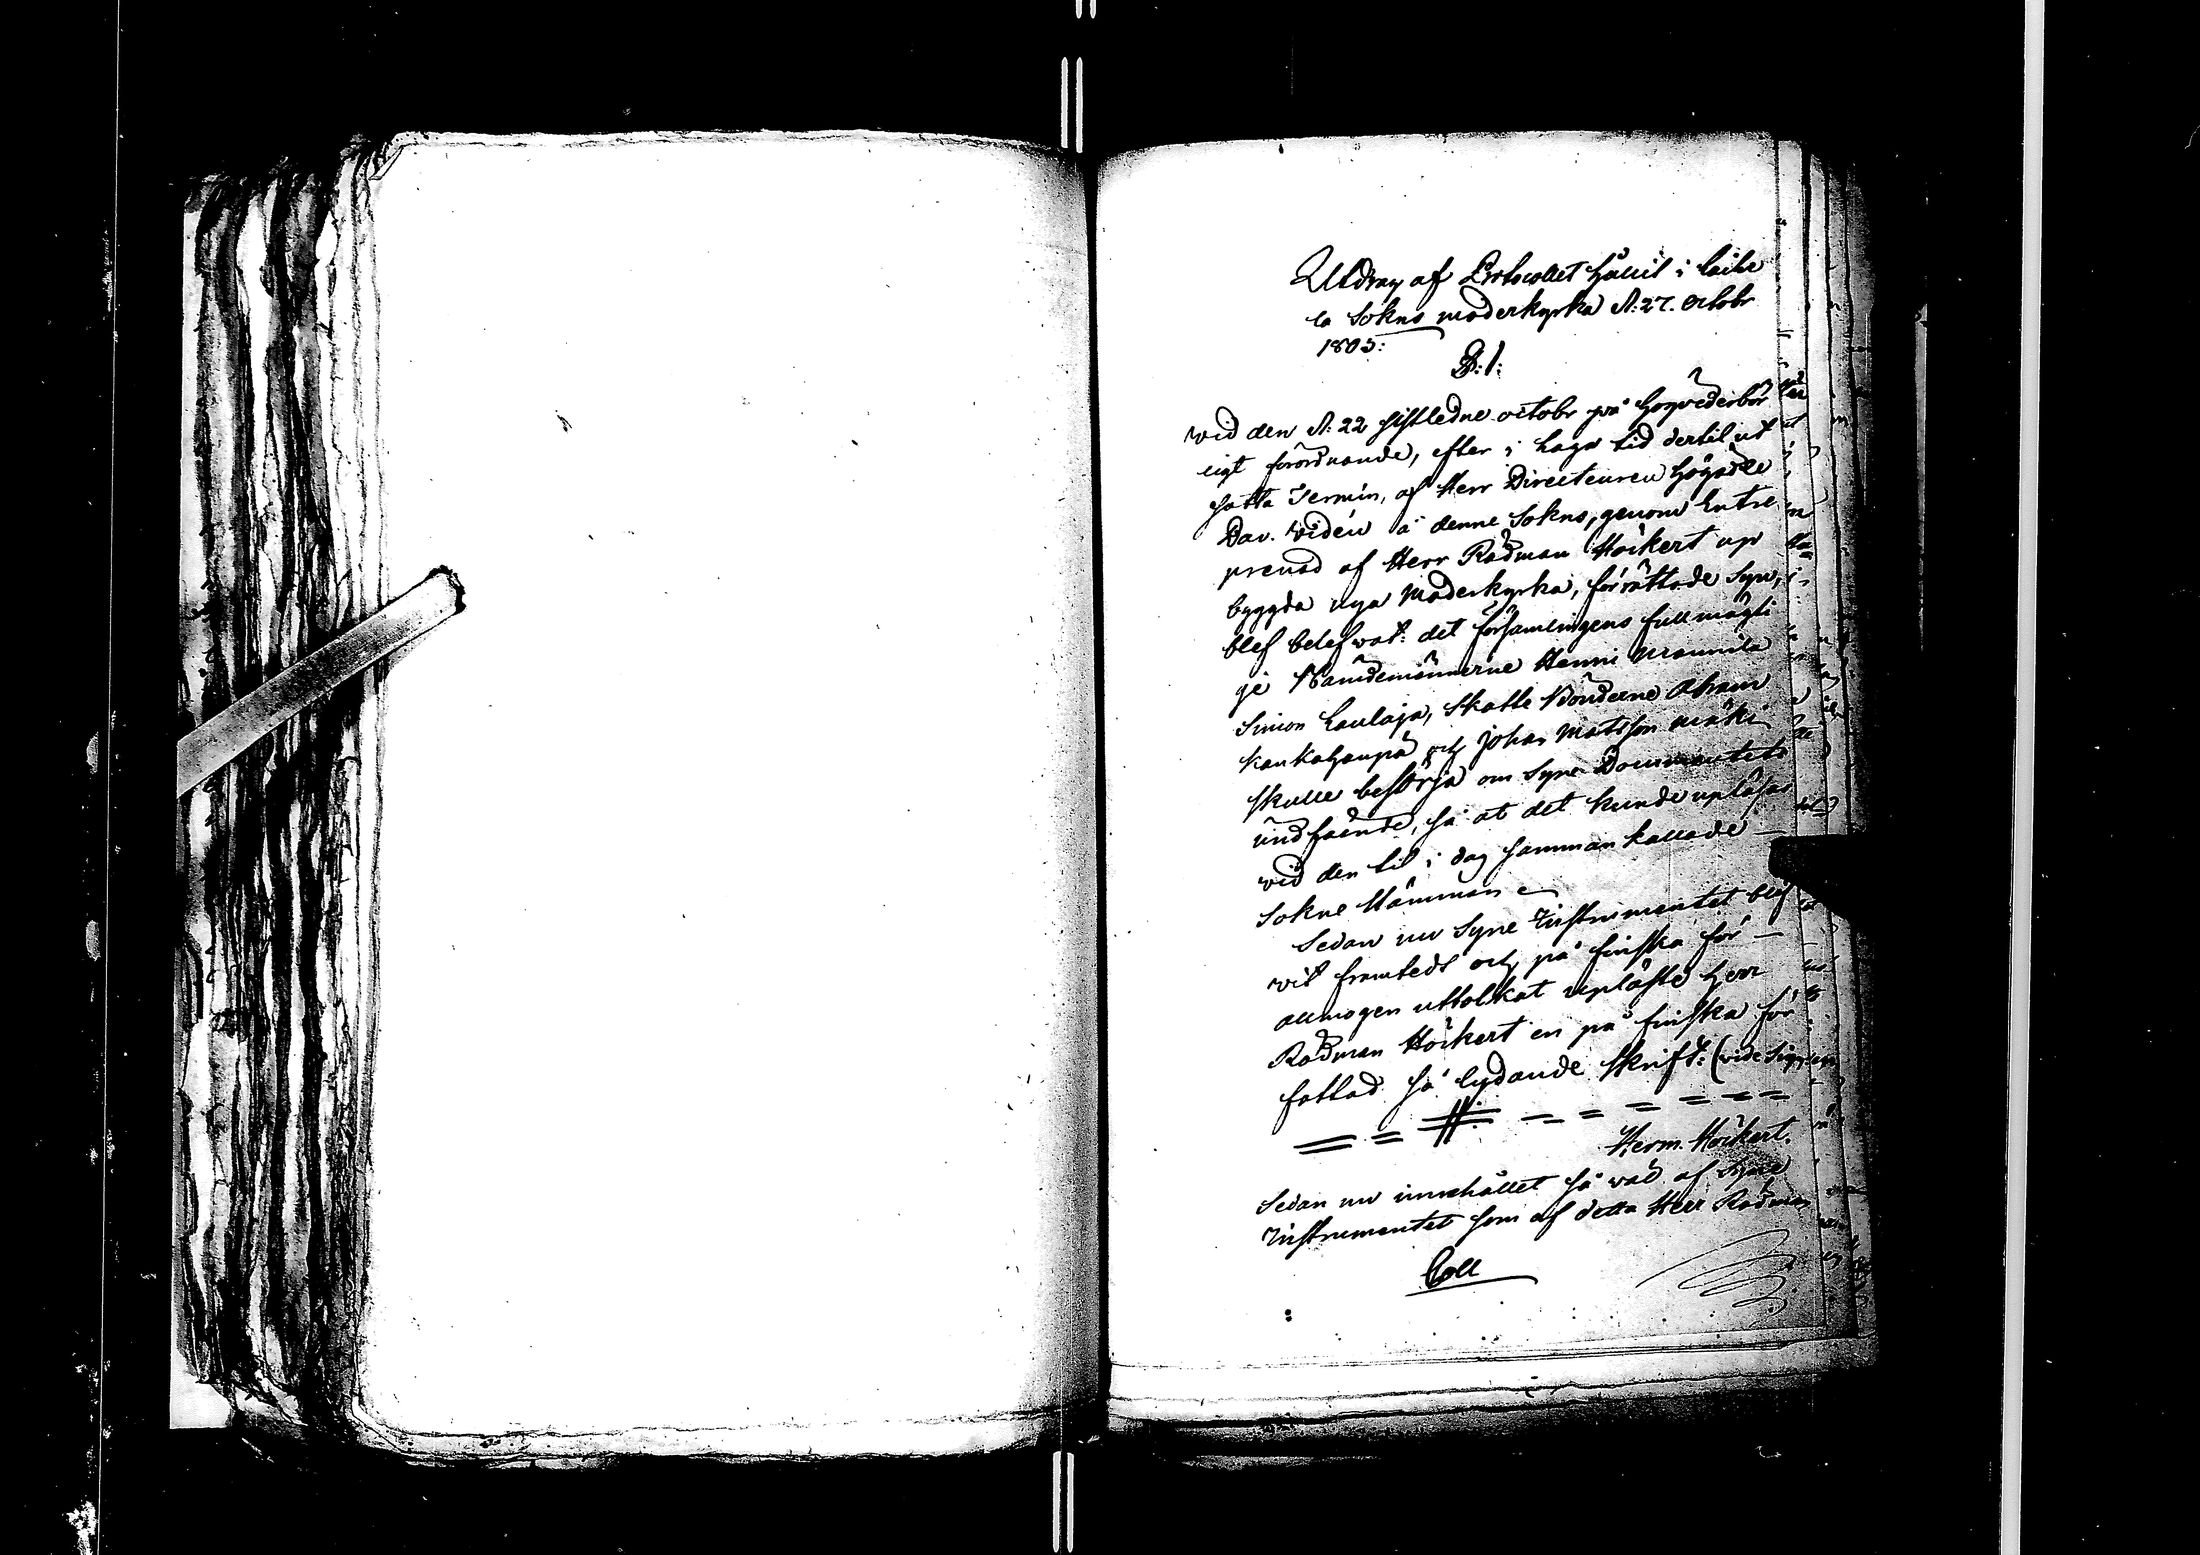 Utdrag af Protocollet hållit i laihe
la Sokns moderkyrka d. 27. Octobr
1805:
§. 1.
wid den d. 22 sistledne octobr på högvederbör
ligt förordnande, efter i laga tid dertil ut
satta Termin, af Herr Directeuren Högädle
Dav. Widén å denne Sokns, genom Entre
prenad af Herr Rådman Höckert up
byggda nya Moderkyrka, förrättade Syn,
blef belefwat: det församlingens fullmägti
ge Nämdemännerne Henric
Simon Laulaja, Skatte Bönderne Abram
Kankahanpä och Johan Matsson mäki
skulle besörja om Syne Documentets
undfående, så at det kunde upläsas
wid den til i dag sammankallade
Sokne Stämman
Sedan nu Syne Instrumentet blef
wit framtedt och på finska för
allmogen uttolkat upläste Herr
Rådman Höckert en på finska för
fattad så lydande skrift: (vide
Herm. Höckert.
Sedan nu innehållet så wäl af Syne
Instrumentet som af detta Herr Rådman
Coll